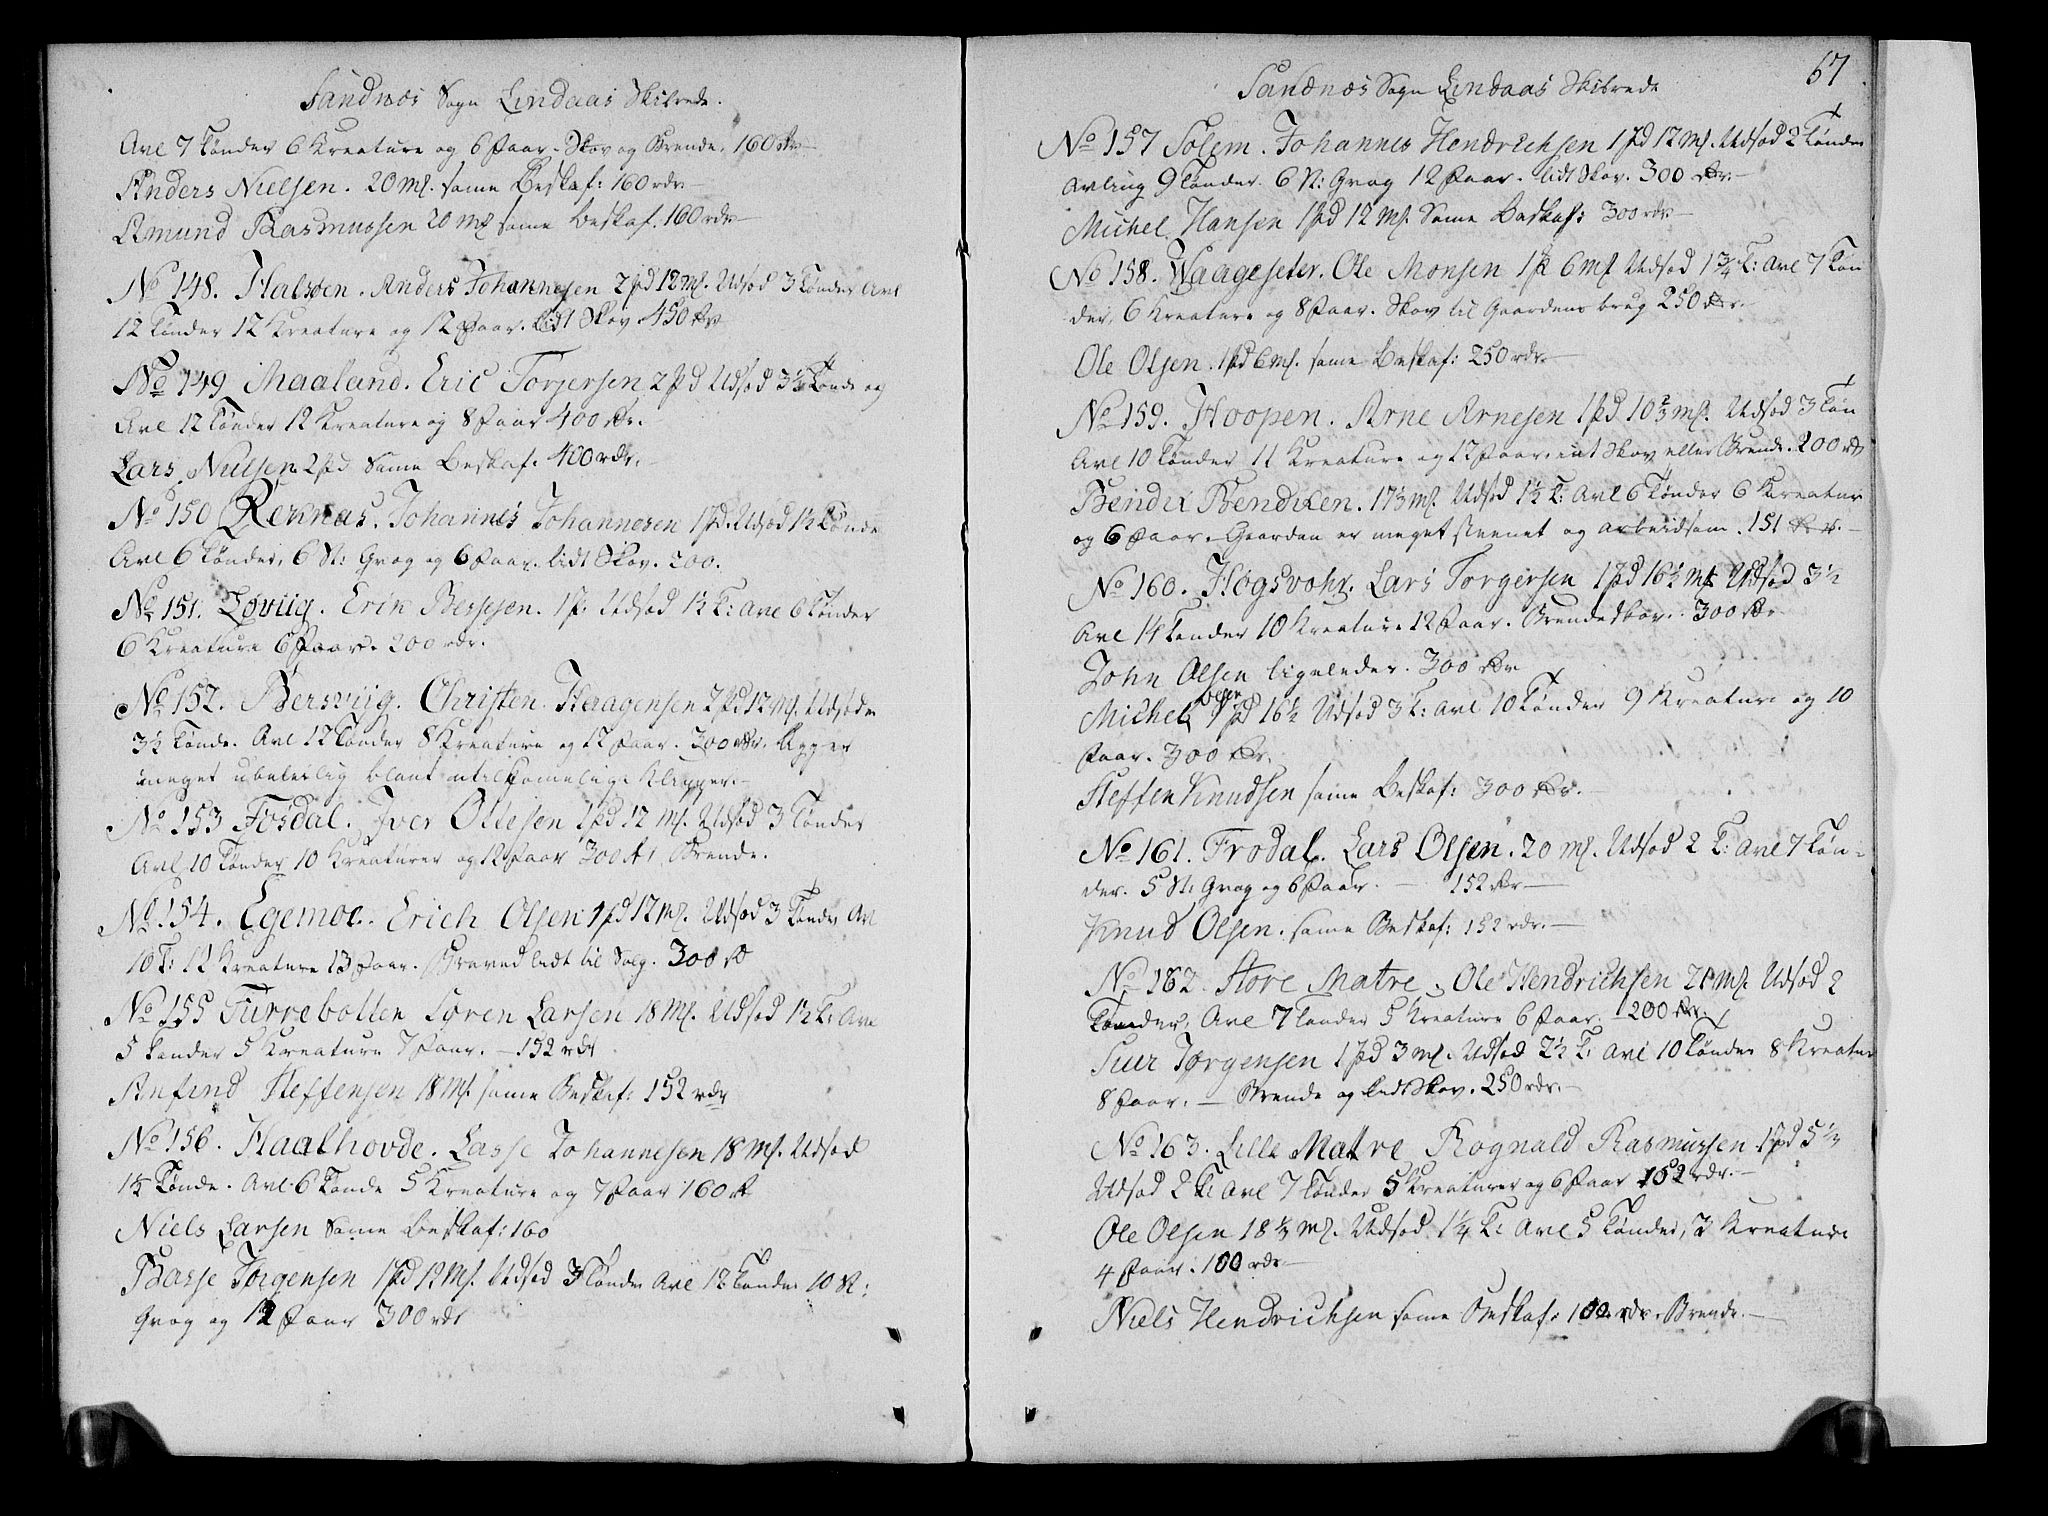 Sandnæs Sogn Lindaas Skibrede.
Avl 7 Tønder 6 Kreature og 6 Faar. Skov og Brende. 160 Rdr
Anders Nielsen. 20 mℓ. same Beskaf: 160 rdr
Amund Rasmussen 20 mℓ same Beskaf. 160 rdr
No 148. Halsøen. Anders Johannesen 2 pd 12 mℓ. Udsæd 3 Tønder Avl
12 Tønder 12 Kreature og 12 Faar. lidt Skov 450 Rdr
No 149 Maaland. Eric Torgersen 2 pd Udsæd 3½ Tønde og
Avl 12 Tønder 12 Kreature og 8 Faar 400 Rdr.
Lars Nielsen 2 pd Same Beskaf. 400 rdr.
No 150 Reknæs. Johannes Johannesen 1 pd. Udsæd 1½ Tønde
Avl 6 Tønder, 6 St: Qvæg og 6 Faar. lidt Skov. 200.
No 151. Løviig. Erik Bessesen. 1 p. Udsæd 1½ T: Avl 6 Tønder
6 Kreature 6 Faar. 200 rdr.
No 152. Bersviig. Christen Haagensen 2 pd 12 mℓ. Udsæde
3½ Tønde. Avl 12 Tønder 8 Kreature og 12 Faar. 300 Rdr. ligger
meget ubeleilig blant utilkomelige Klipper.
No 153 Fosdal. Iver Ollesen 1 pd 12 mℓ. Udsæd 3 Tønder
Avl 10 Tønder 10 Kreaturer og 12 Faar 300 Rd Brende.
No 154. Egemoe. Erich Olsen 1 pd 12 mℓ. Udsæd 3 Tønder Av
10 T: 12 Kreature 13 Faar. lidt til Salg. 300 Rd
No 155 Turrebotten Søren Larsen 18 mℓ. Udsæd 1½ T: Avl
5 Tønder 5 Kreature 7 Faar. — 152 rdr
Anfind Steffensen 18 mℓ same Beskaf: 152 rdr
No 156. Haalhovde. Lasse Johannesen 18 mℓ. Udsæd
1½ Tønde. Avl 6 Tønde 5 Kreature og 7 Faar 160 Rd
Niels Larsen Same Beskaf: 160
Basse Jørgensen 1 pd 12 mℓ. Udsæd 3 Tønder Avl 12 Tønder 10 St:
Qvæg og 12 Faar 300 rdr
67
Sandnæs Sogn Lindaas Skibrede
No 157 Solem. Johannes Hendrichsen 1 pd 12 mℓ. Udsæd 2 Tønder
Avling 9 Tønder. 6 St: Qvæg 12 Faar. lidt Skov. 300 Rdr.
Michel Hansen 1 pd 12 mℓ. Same Beskaf: 300 rdr
No 158. Waageseter. Ole Monsen 1 p 6 mℓ Udsæd 1¾ T: Avl 7 Tøn
der, 6 Kreature og 8 Faar. Skov til Gaardens brug 250 Rdr.
Ole Olsen. 1 pd 6 mℓ. same Beskaf: 250 rdr.
No 159. Hoopen. Arne Arnesen 1 pd 10⅔ mℓ. Udsæd 3 Tøn
Avl 10 Tønder 11 Kreature og 12 Faar. ent Skov eller Brende. 200 rd
Bendix Bendixen. 17⅓ mℓ. Udsæd 1½ T: Avl 6 Tønder 6 Kreatur
og 6 Faar. Gaarden er meget steenet og arbeidsom. 151 Rdr.
No 160. Høgsvohr. Lars Torgersen 1 pd 16½ mℓ Udsæd 3½
Avl 14 Tønder 10 Kreature 12 Faar. Brendeskov. 300 Rdr
John Olsen ligeleder. 300 Rdr
Michel Olsen 1 pd 16½ Udsæd 3 T: Avl 10 Tønder 9 Kreature og 10
Faar. 300 Rdr.
Steffen Knudsen same Beskaf: 300 Rdr.
No 161. Frodal. Lars Olsen. 20 mℓ. Udsæd 2 T: Avl 7 Tøn-
der. 5 St: Qvæg og 6 Faar. — 152 Rdr
Knud Olsen. same Beskaf: 152 rdr.
No 162. Store Matre. Ole Hendrichsen 21 mℓ. Udsæd 2
Tønder, Avl 7 Tønder 5 Kreature 6 Faar. — 200 Rdr.
Siur Jørgensen 1 pd 3 mℓ. Udsæd 2½ T: Avl 10 Tønder 8 Kreatur
8 Faar. — Brende og lidt Skov. 250 rdr.
No 163. Lille Matre Rognald Rasmussen 1 pd 5⅓
Udsæd 2 T: Avl 7 Tønder 5 Kreaturer og 6 Faar 152 rdr.
Ole Olsen 18⅓ mℓ. Udsæd 1¼ T: Avl 5 Tønder, 3 Kreature
4 Faar. 100 rdr
Niels Hendrichsen same Beskaf. 100 rdr. Brende.